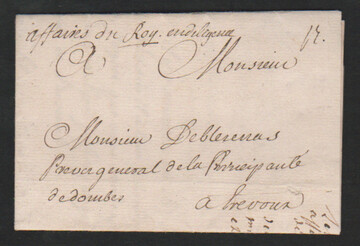 affaires du Roy. en diligence
A Monsieur
Monsieur
general de la Principauté
de dombes
a trevoux